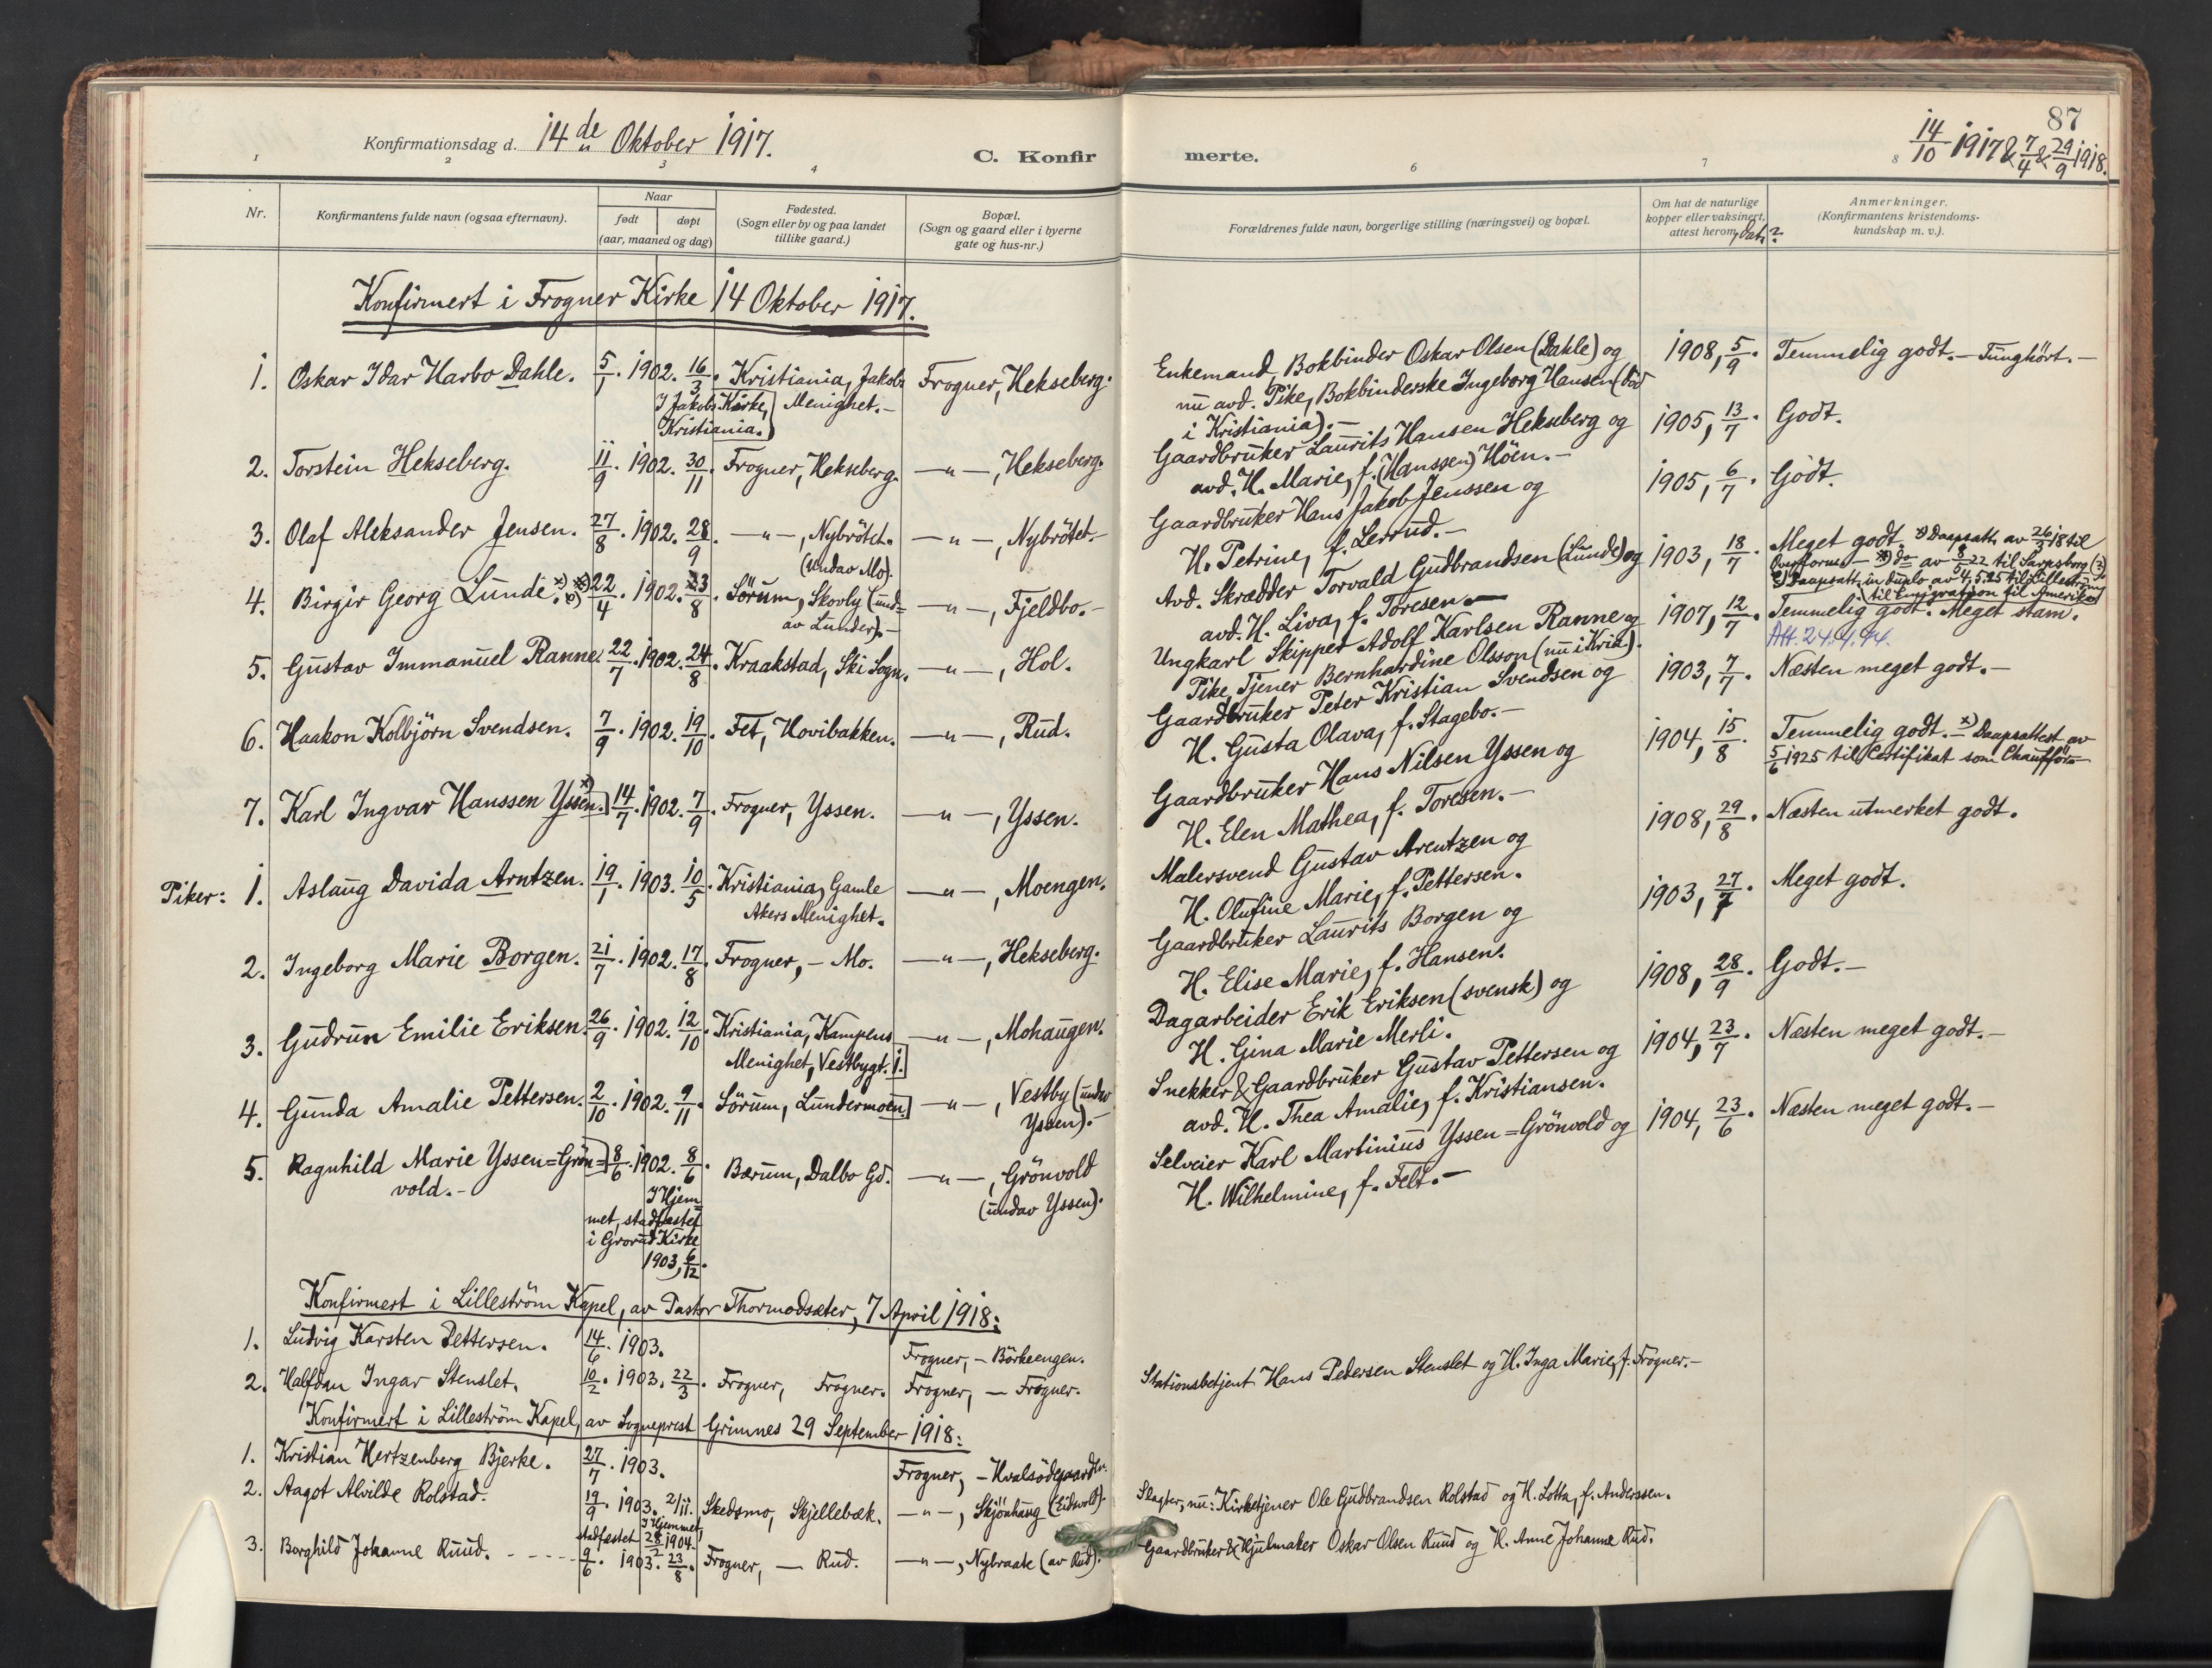 Konfirmationsdag d. 14de Oktober 1917.
C. Konfir merte.
87
14/10 1917 & 7/4 & 29/9 1918.
1 2 3 4 6 7 8
Nr.
Konfirmantens fulde navn (ogsaa efternavn).
Naar
født døpt
(aar, maaned og dag)
Fødested.
(Sogn eller by og paa landet
tillike gaard.)
Bopæl.
(Sogn og gaard eller i byerne
gate og hus-nr.)
Forældrenes fulde navn, borgerlige stilling (næringsvei) og bopæl.
Om hat de naturlige
kopper eller vaksinert,
attest herom, dat.?
Anmerkninger.
(Konfirmantens kristendoms-
kundskap m. v.).
Konfirmert i Frogner Kirke 14 Oktober 1917.
1. Oskar Idar Harbo Dahle. 5/1. 1902. 16/3. Kristiania, Jakobs Frogner, Hekseberg.
I Jakobs Kirke, Menighet.-
Kristiania.
Enkemand, Bokbinder Oskar Olsen (Dahle) og 1908, 5/9. Temmelig godt.- Tunghört.-
nu avd. Pike, Bokbinderske Ingeborg Hansen (död
i Kristiania).-
2. Torstein Hekseberg. 11/9. 1902. 30/11. Frogner, Hekseberg. -"-, Hekseberg.
Gaardbruker Laurits Hansen Hekseberg og 1905, 13/7. Godt.
avd. H. Marie, f. (Hanssen) Höen.-
3. Olaf Aleksander Jensen. 27/8. 1902. 28/9. -"-, Nybrötet. -"-, Nybrötet.-
(undav Mo).
Gaardbruker Hans Jakob Jenssen og 1905, 6/7. Godt.
H. Petrine, f. Lerrud.-
4. Birgir Georg Lunde. 22/4. 1902. 23/8. Sörum, Skovly (und= -"-, Fjeldbo.-
av Lunder).-
Avd. Skrædder Torvald Gudbrandsen (Lunde) og 1903, 18/7. Meget godt. x) Daapsatt. av 26/3 18 til
avd. H. Liva, f. Toresen.-
- xx) do av 8/5 22 til Sarpsborg
Daapsatt. in duplo av 4.5.25 til Lilleström
til Emigration til Amerika
5. Gustav Immanuel Ranne. 22/7. 1902. 24/8. Kraakstad, Ski Sogn. -"-, Hol.
Ungkarl Skipper Adolf Karlsen Ranne og 1907, 12/7. Temmelig godt. Meget stam.
Pike, Tjener Bernhardine Olsson (nu i Kria). Att. 24.4.44.
6. Haakon Kolbjörn Svendsen. 7/9. 1902. 19/10. Fet, Hovibakken. -"-, Rud.
Gaardbruker Peter Kristian Svendsen og 1903, 7/7. Næsten meget godt.-
H. Gusta Olava, f. Stagebo.-
7. Karl Ingvar Hanssen Yssen. x) 14/7. 1902. 7/9. Frogner, Yssen. -"-, Yssen.
Gaardbruker Hans Nilsen Yssen og 1904, 15/8. Temmelig godt. x) Daapsattest av
H. Elen Mathea, f. Toresen.- 5/6 1925 til Certifikat som Chaufför.
Piker: 1. Aslaug Davida Arntzen. 19/1. 1903. 10/5. Kristiania, Gamle -"-, Moengen.
Akers Menighet.
Malersvend Gustav Arentzen og 1908, 29/8. Næsten utmerket godt.
H. Olufine Marie, f. Pettersen.
2. Ingeborg Marie Borgen. 21/7. 1902. 17/8. Frogner, - Mo. -"-, Hekseberg.
Gaardbruker Laurits Borgen og 1903, 27/7. Meget godt.
H. Elise Marie, f. Hansen.
3. Gudrun Emilie Eriksen. 26/9. 1902. 12/10. Kristiania, Kampens -"-, Mohaugen.
Menighet, Vestbygt. 1.
Dagarbeider Erik Eriksen (svensk) og 1908, 28/9. Godt.-
H. Gina Marie Merli.
4. Gunda Amalie Pettersen. 2/10. 1902. 9/11. Sörum, Lundermoen. -"-, Vestby (undav
Yssen).-
Snekker & Gaardbruker Gustav Pettersen og 1904, 23/7. Næsten meget godt.-
avd. H. Thea Amalie, f. Kristiansen.
5. Ragnhild Marie Yssen=Grön= 8/6. 1902. 8/6. Bærum, Dalbo Gd. -"-, Grönvold
vold.- I Hjem= (undav Yssen).
met, stadfæstet
i Grorud Kirke
1903, 6/12.
Selveier Karl Martinius Yssen=Grönvold og 1904, 23/6. Næsten meget godt.-
H. Wilhelmine, f. Felt.-
Konfirmert i Lilleström Kapel, av Pastor Thormodsæter, 7 April 1918:
1. Ludvig Karsten Pettersen. 14/6. 1903. Frogner, - Börkeengen.
2. Halfdan Ingar Stenslet. 10/2. 1903. 22/3. Frogner, Frogner. Frogner, - Frogner.
Stationsbetjent Hans Pedersen Stenslet og H. Inga Marie, f. Frogner.-
Konfirmert i Lilleström Kapel, av Sogneprest Grimnes 29 September 1918:
1. Kristian Hertzenberg Bjerke. 27/7. 1903. Frogner, - Hvalsödegaarden.
2. Aagot Alvilde Rolstad. 19/9. 1903. 2/11. Skedsmo, Skjellebæk. -"-, Skjönhaug (Eidsvold).
I Hjemmet,
stadfæstet 28/2 1904.
Slagter, nu: Kirketjener Ole Gudbrandsen Rolstad og H. Lotta, f. Anderssen.
3. Borghild Johanne Ruud. - - - - 9/6. 1903. 23/8. Frogner, - Rud. -"-, Nybraate (av Rud).
Gaardbruker & Hjulmaker Oskar Olsen Ruud og H. Anne Johanne Rud.